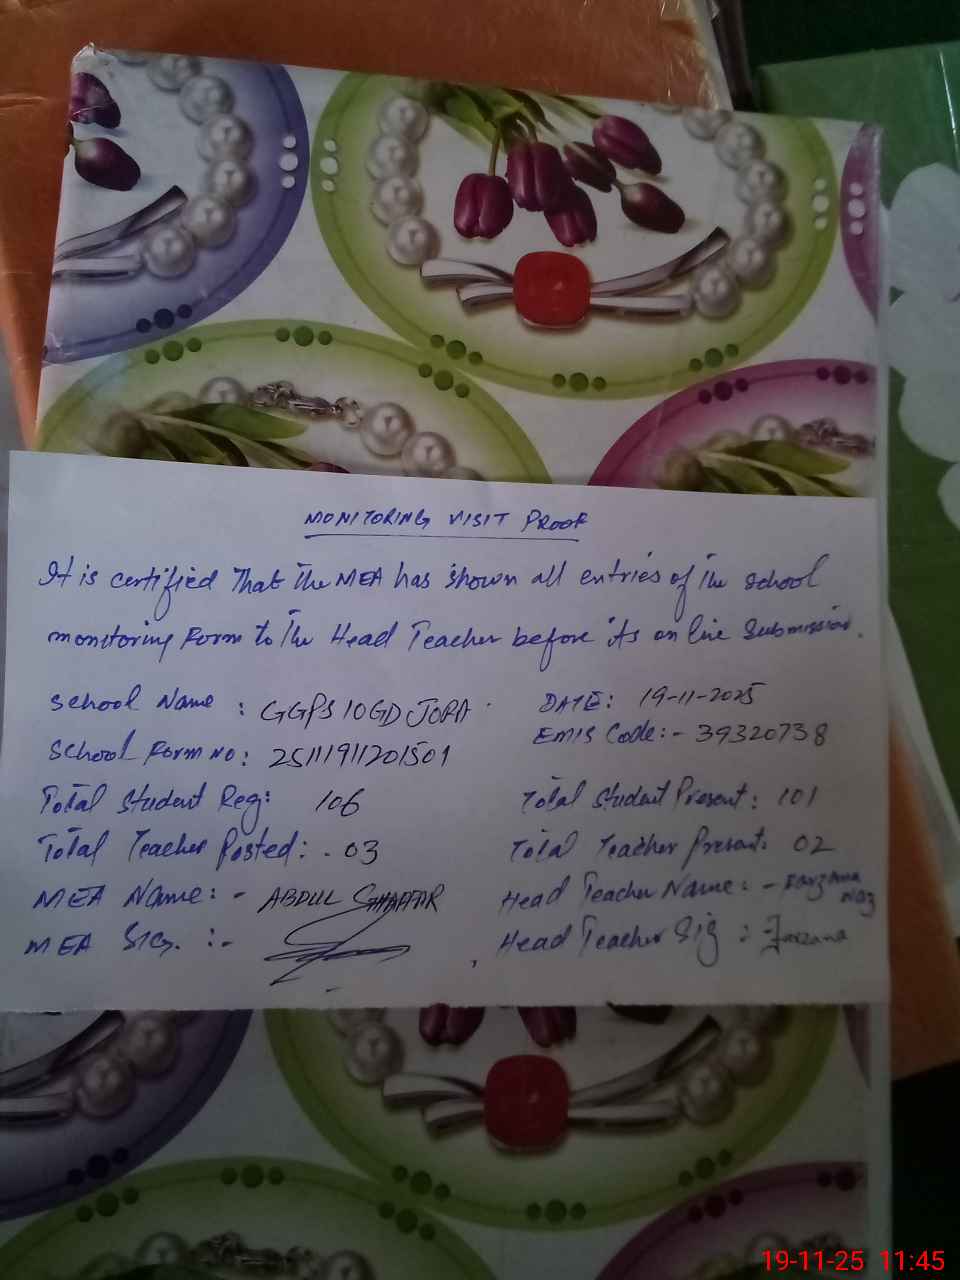 MONITORING VISIT PROOF
It is certified That The MEA has shown all entries of The School
monitoring Form to The Head Teacher before its on line Submission.
School Name : GGPS 10GD JORA DATE: 19-11-2025
School Form No: 25111911201501 EMIS Code:- 39320738
Total Student Reg: 106 Total Student Present: 101
Total Teacher Posted: 03 Total Teacher Present: 02
MEA Name:- ABDUL GHAFFAR Head Teacher Name:- Farzana Naz
MEA SIG. :- Head Teacher Sig : Farzana
19-11-25 11:45